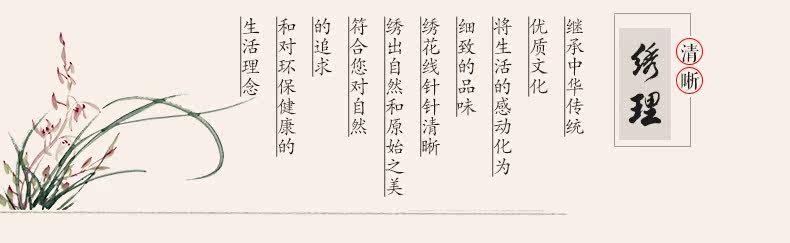 绣理
清晰
继承中华传统
优质文化
将生活的感动化为
细致的品味
绣花线针针清晰
绣出自然和原始之美
符合您对自然
的追求
和对环保健康的
生活理念